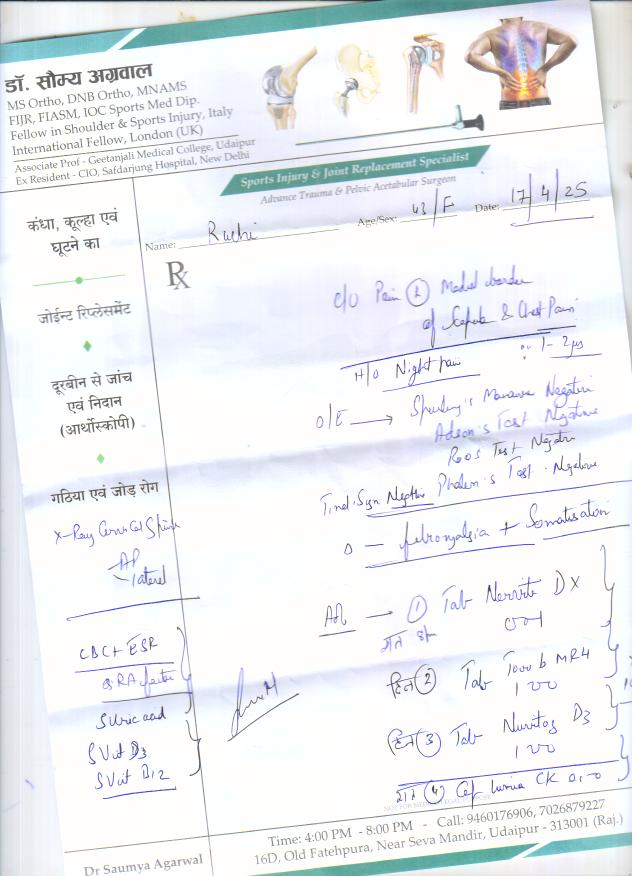 डॉ. सौम्य अग्रवाल
MS Ortho, DNB Ortho, MNAMS
FIJR, FIASM, IOC Sports Med Dip.
Fellow in Shoulder & Sports Injury, Italy
International Fellow, London (UK)
Associate Prof - Geetanjali Medical College, Udaipur
Ex Resident - CIO, Safdarjung Hospital, New Delhi
Sports Injury & Joint Replacement Specialist
Advance Trauma & Pelvic Acetabular Surgeon
Name: Ruchi Age/Sex: 43/F Date: 17/4/25
कंधा, कूल्हा एवं
घूटने का
जोईन्ट रिप्लेसमेंट
दूरबीन से जांच
एवं निदान
(आर्थोस्कोपी)
गठिया एवं जोड़ रोग
X-Ray Spine
AP
lateral
CBC + ESR
RA factor
S Uric acid
S Vit D3
S Vit B12
Rx
C/O Pain Medial border
of & Chest Pain
1-2
H/O Night pain
O/E → Negative
Adson's Test Negative
Roos Test Negative
Tinel Sign Phalen's Test Negative
fibromyalgia + Somatisation
→ ① Tab D X
001
दिन ② Tab MR4
100
दिन ③ Tab D3
100
④ CK
NOT FOR MEDICO LEGAL PURPOSE
Dr Saumya Agarwal
Time: 4:00 PM - 8:00 PM - Call: 9460176906, 7026879227
16D, Old Fatehpura, Near Seva Mandir, Udaipur - 313001 (Raj.)